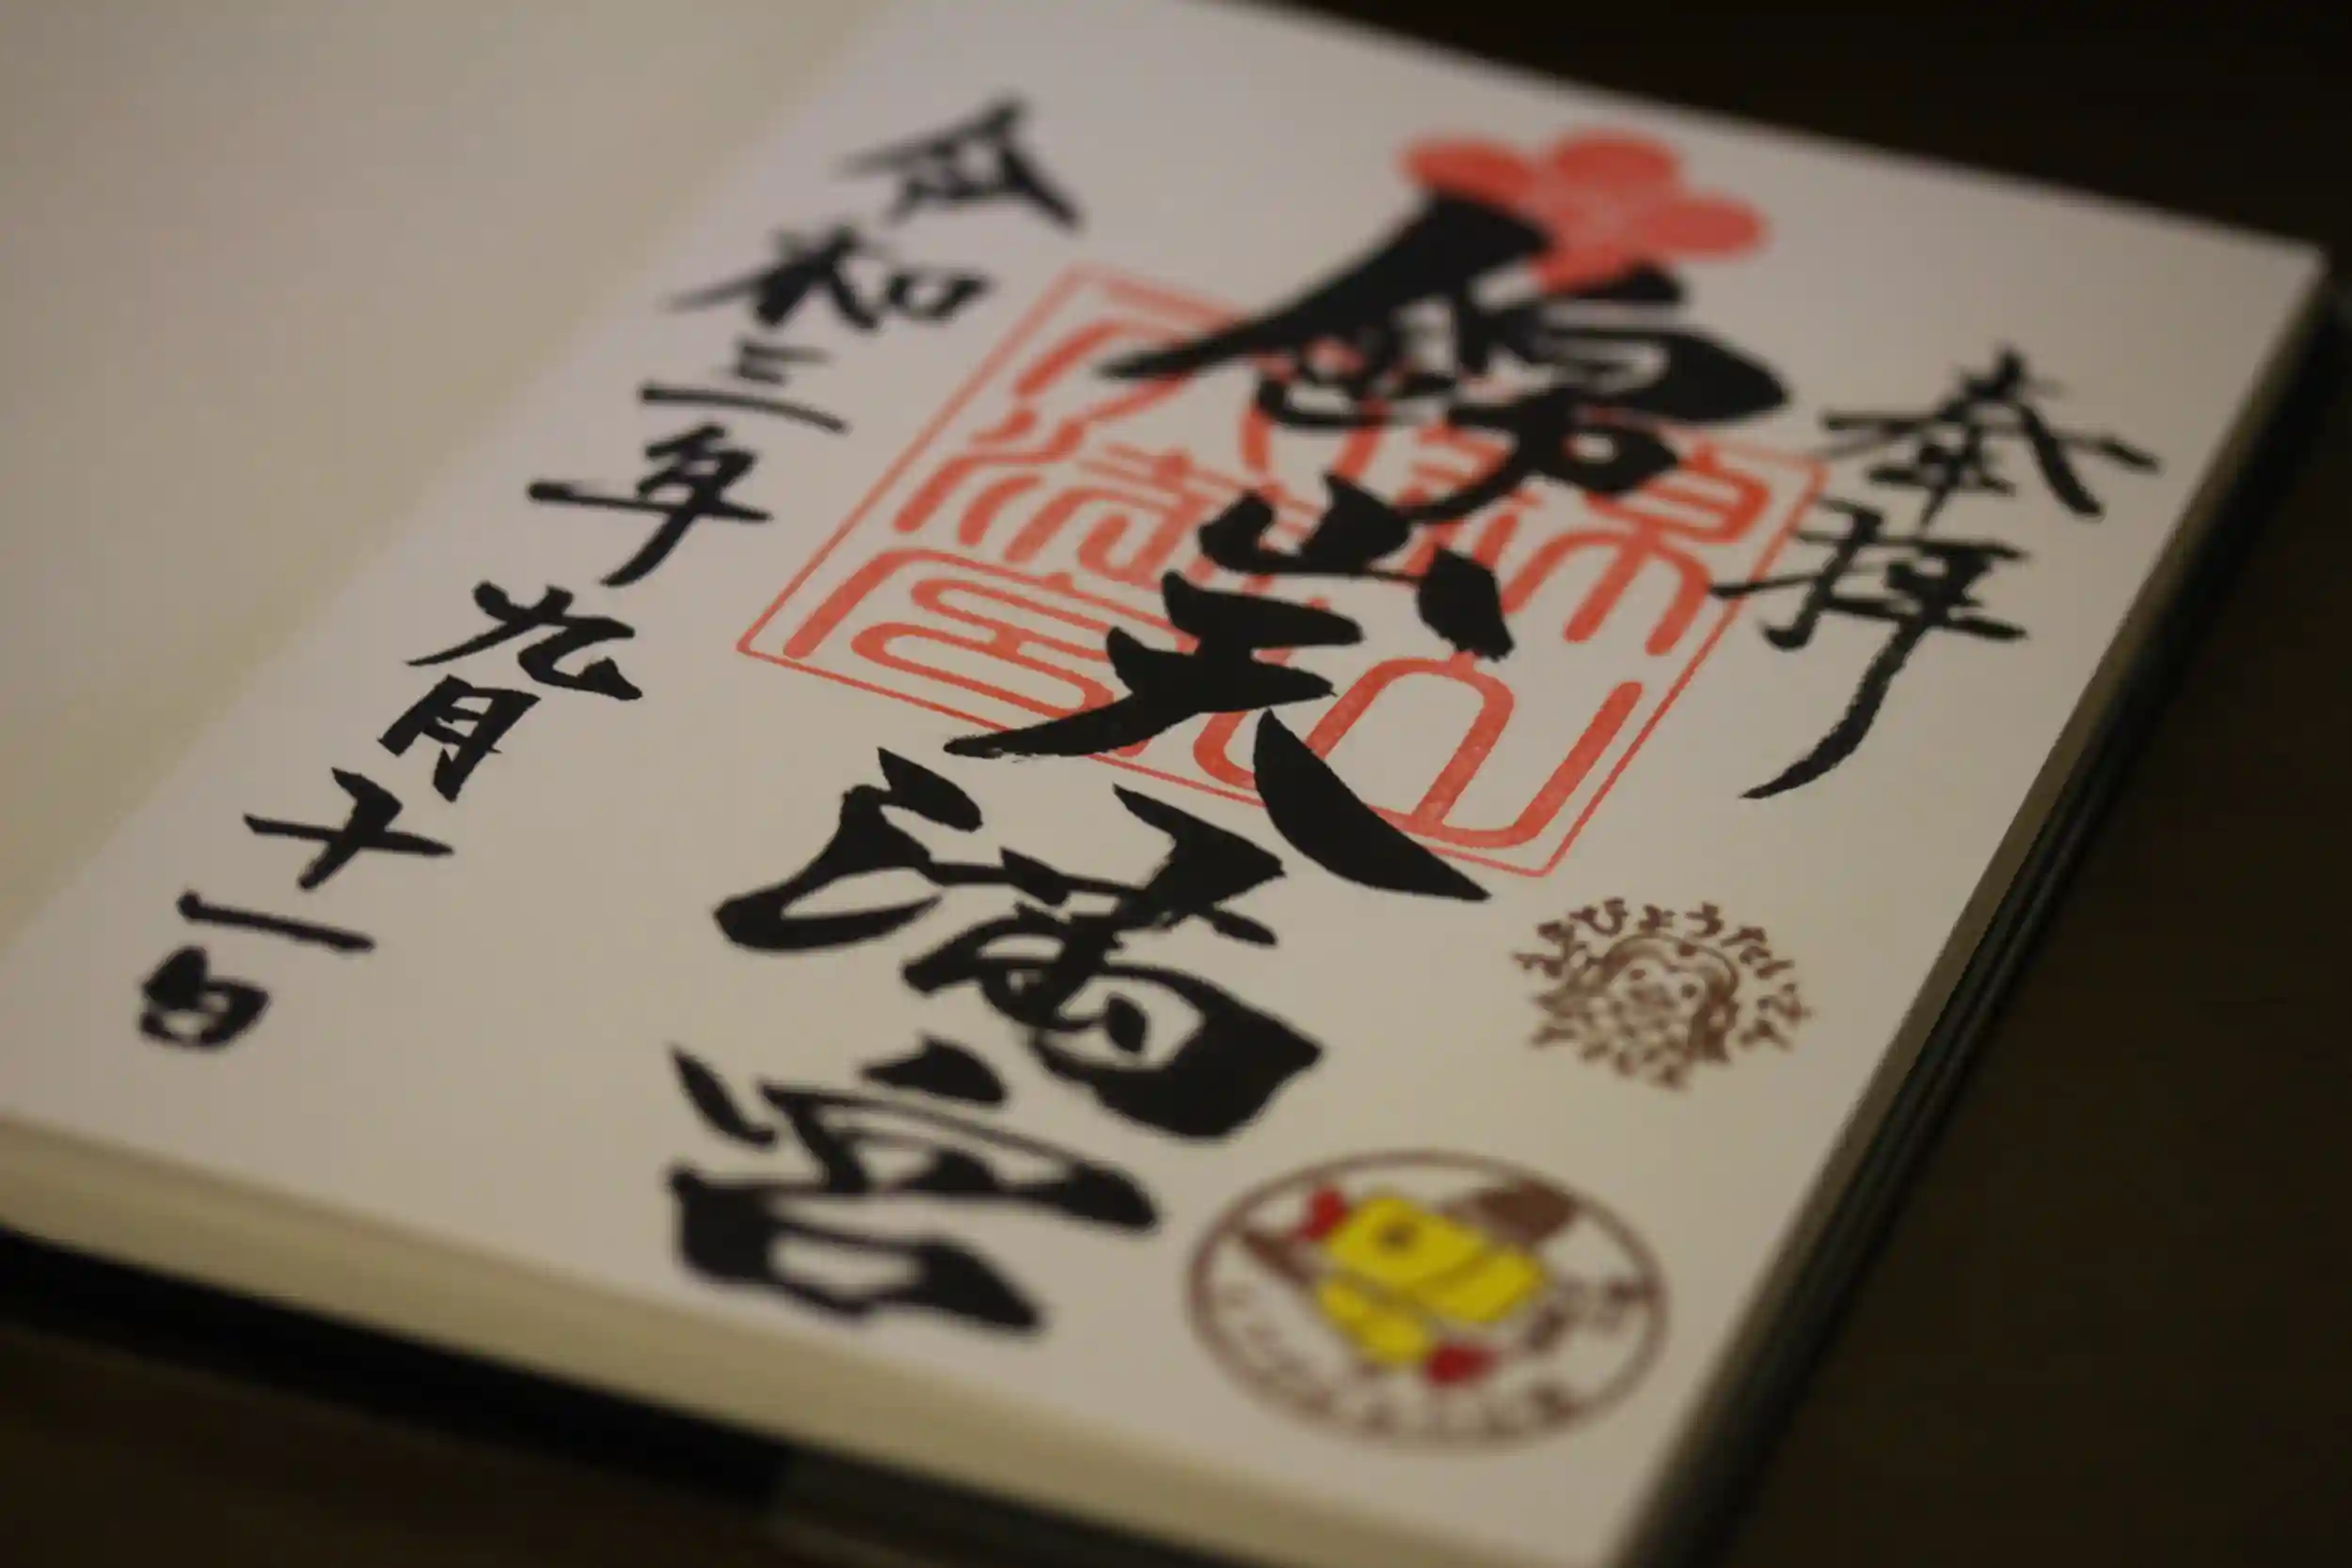 奉拝
錦山天満宮
令和三年九月十一日